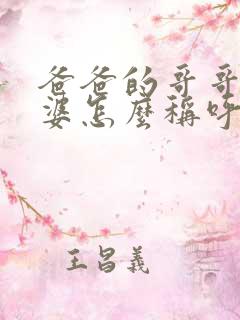 爸爸的哥哥
婆怎麼稱呼
王昌義